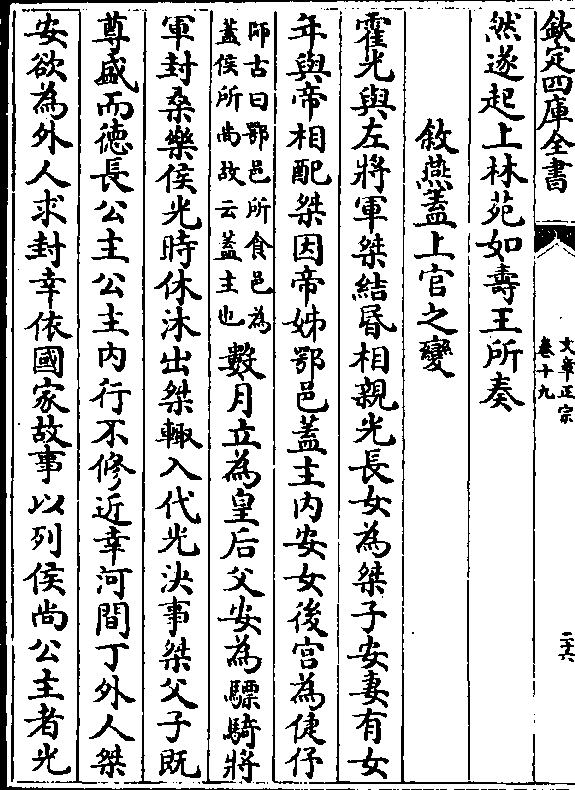 欽定四庫全書
文章正宗
卷十九
二十六
然遂起上林苑如壽王所奏
敘燕蓋上官之變
霍光與左將軍桀結昬相親光長女為桀子安妻有女
年與帝相配桀因帝姊鄂邑蓋主内安女後宫為倢伃
師古曰鄂邑所食邑為
蓋侯所尚故云蓋主也
數月立為皇后父安為驃騎將
軍封桑樂侯光時休沐出桀輙入代光決事桀父子既
尊盛而德長公主公主内行不修近幸河間丁外人桀
安欲為外人求封幸依國家故事以列侯尚公主者光